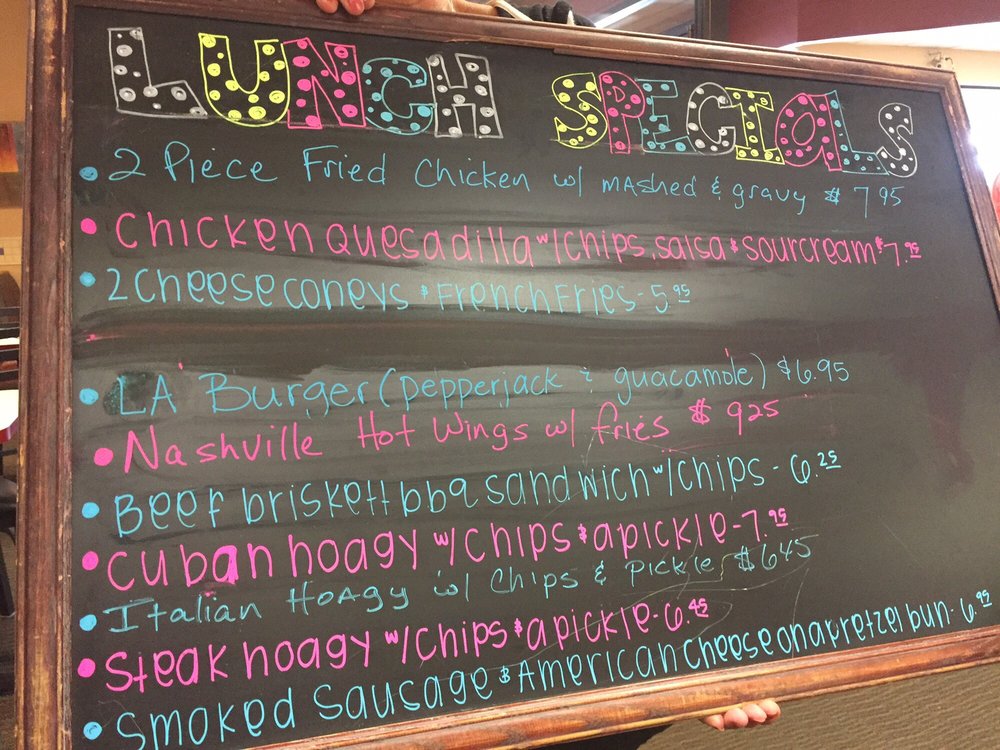 LUNCH SPECIALS
• 2 Piece Fried Chicken w/ mashed & gravy $ 7 95
• Chicken Quesadilla w/chips, salsa & sourcream $7.95
• 2 Cheese coneys & French Fries - 5.95
• LA Burger (pepperjack & guacamole) $6.95
• Nashville Hot Wings w/ fries $ 925
• Beef briskett bbq sandwich w/chips - 6.25
• Cuban hoagy w/chips & a pickle - 7.95
• Italian Hoagy w/ Chips & Pickle $6.45
• Steak hoagy w/chips & a pickle - 6.45
• Smoked Sausage & American cheese on a pretzel bun - 6.95